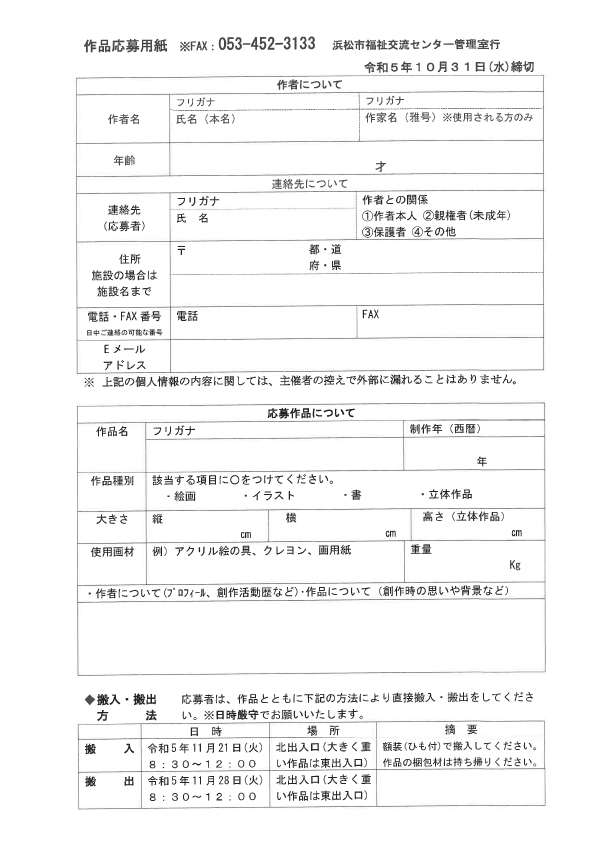 作品応募用紙 ※FAX：053-452-3133 浜松市福祉交流センター管理室行
令和５年１０月３１日(水)締切
作者について
作者名
フリガナ
氏名（本名）
フリガナ
作家名（雅号）※使用される方のみ
年齢
才
連絡先について
連絡先
（応募者）
フリガナ
氏 名
作者との関係
①作者本人 ②親権者(未成年)
③保護者 ④その他
住所
施設の場合は
施設名まで
〒
都・道
府・県
電話・FAX番号
日中ご連絡の可能な番号
電話
FAX
Ｅメール
アドレス
※ 上記の個人情報の内容に関しては、主催者の控えで外部に漏れることはありません。
応募作品について
作品名
フリガナ
制作年（西暦）
年
作品種別
該当する項目に○をつけてください。
・絵画 ・イラスト ・書 ・立体作品
大きさ
縦
cm
横
cm
高さ（立体作品）
cm
使用画材
例）アクリル絵の具、クレヨン、画用紙
重量
Kg
・作者について(ﾌﾟﾛﾌｨｰﾙ、創作活動歴など)・作品について（創作時の思いや背景など）
◆搬入・搬出
方 法
応募者は、作品とともに下記の方法により直接搬入・搬出をしてくださ
い。※日時厳守でお願いいたします。
日 時
場 所
摘 要
搬 入
令和５年11月21日(火)
８：３０～１２：００
北出入口(大きく重
い作品は東出入口)
額装(ひも付)で搬入してください。
作品の梱包材は持ち帰りください。
搬 出
令和５年11月28日(火)
８：３０～１２：００
北出入口(大きく重
い作品は東出入口)